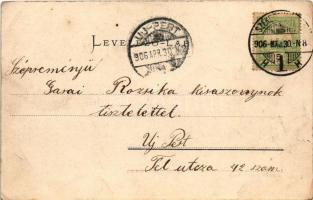 LEVEL
UJ-PEST
906 APR. 30
906 APR. 30. N8
Szépreményü
Garai Rozsika kisasszonynak
tisztelettel.
Uj Pest
Tél utcza 42 szám.